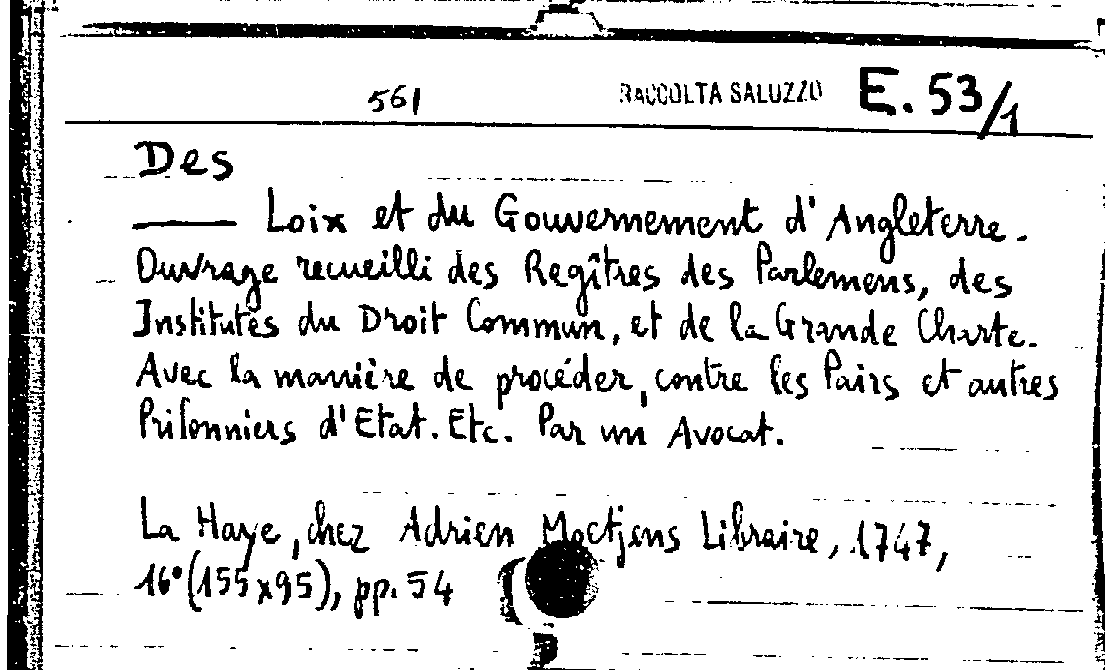 561 RACCOLTA SALUZZO E. 53/1
Des
—— Loix et du Gouvernement d'Angleterre.
Ouvrage recueilli des Regîtres des Parlemens, des
Institutes du Droit Commun, et de la Grande Charte.
Avec la manière de procéder, contre les Pairs et autres
Prisonniers d'Etat. Etc. Par un Avocat.
La Haye, chez Adrien Moetjens Libraire, 1747,
16° (155x95), pp. 54